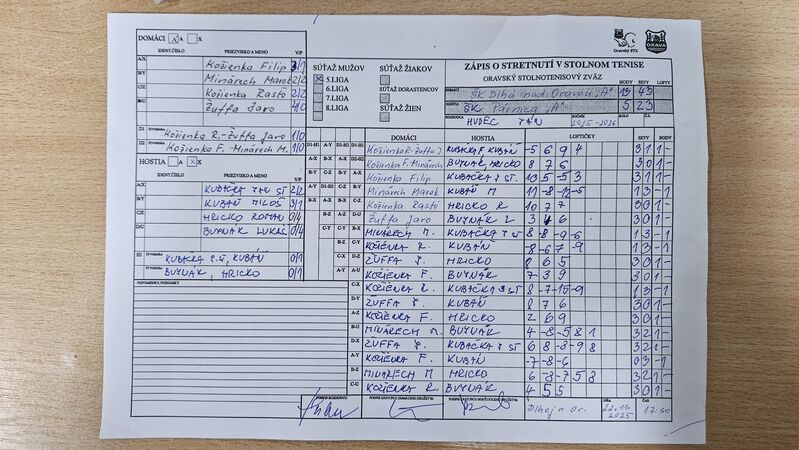 DOMÁCI X A X
IDENT.ČÍSLO PRIEZVISKO A MENO V/P
A/X Kožienka Filip 3/1
B/Y Minárech Marek 2/2
C/Z Kožienka Rastó 2/2
D/U Žuffa Jaro 4/0
D1 ŠTVORHRA Kožienka R.-Žuffa Jaro 1/0
D2 ŠTVORHRA Kožienka F.-Minárech M. 1/0
HOSTIA A X X
IDENT.ČÍSLO PRIEZVISKO A MENO V/P
A/X KUBAČKA JAN ST 2/2
B/Y KUBÁŇ MILOŠ 3/1
C/Z HRICKO ROMAN 0/4
D/U BUYNÁK LUKÁŠ 0/4
H1 ŠTVORHRA KUBAČKA J.ST, KUBÁŇ 0/1
BUYNÁK, HRICKO 0/1
PRIPOMIENKY, POZNÁMKY
SÚŤAŽ MUŽOV
X 5.LIGA
6.LIGA
7.LIGA
8.LIGA
SÚŤAŽ ŽIAKOV
SÚŤAŽ DORASTENCOV
SÚŤAŽ ŽIEN
Oravský STZ
ORAVA
ZÁPIS O STRETNUTÍ V STOLNOM TENISE
ORAVSKÝ STOLNOTENISOVÝ ZVÄZ
BODY SETY LOPTY
DOMÁCI ŠK Dlhá nad Oravou "A" 13 43
HOSTIA ŠK Párnica "A" 5 23
ROZHODCA HUDEC JÁN 2025-2026 KOLO Č.
DOMÁCI HOSTIA LOPTIČKY SETY BODY
Kožienka R-Žuffa J KUBAČKA, KUBÁŇ -5 6 9 4 3 1 1 -
Kožienka F.-Minárech BUYNÁK, HRICKO 8 7 6 3 0 1 -
Kožienka Filip KUBAČKA J ST. 10 5 -5 3 3 1 1 -
Minárech Marek KUBÁŇ M 11 -8 -12 -5 1 3 - 1
Kožienka Rastó HRICKO R 10 7 7 3 0 1 -
Žuffa Jaro BUYNÁK L 3 4 6 3 0 1 -
MINÁRECH M. KUBAČKA J ST 8 -8 -9 -6 1 3 - 1
KOŽIENKA R. KUBÁŇ -8 -6 7 -9 1 3 - 1
ŽUFFA J. HRICKO 8 6 5 3 0 1 -
KOŽIENKA F. BUYNÁK 7 3 9 3 0 1 -
KOŽIENKA R. KUBAČKA J ST 8 -7 -15 -9 1 3 - 1
ŽUFFA J. KUBÁŇ 8 7 6 3 0 1 -
KOŽIENKA F. HRICKO 2 6 9 3 0 1 -
MINÁRECH M. BUYNÁK 4 -8 -5 8 1 3 2 1 -
ŽUFFA J. KUBAČKA J ST 6 8 -8 -9 8 3 2 1 -
KOŽIENKA F. KUBÁŇ -7 -8 -6 0 3 - 1
MINÁRECH M HRICKO 6 -8 -7 5 8 3 2 1 -
KOŽIENKA R. BUYNÁK 4 5 5 3 0 1 -
PODPIS ROZHODCU PODPIS ZÁSTUPCU DOMÁCEHO DRUŽSTVA PODPIS ZÁSTUPCU HOSŤUJÚCEHO DRUŽSTVA V Dlhej n Or. DŇA 22.11. 2025 ČAS 17:30